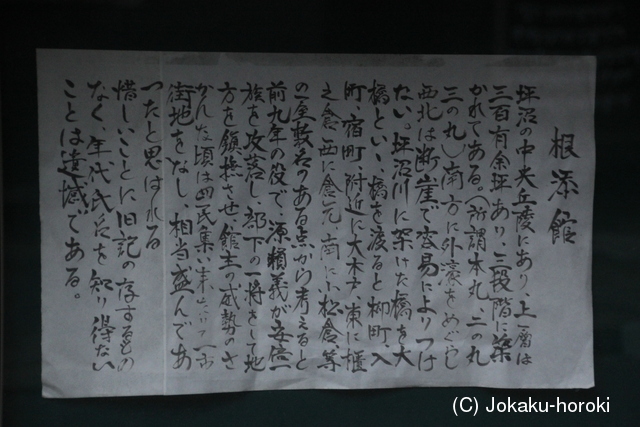 根添館
坪沼の中央丘陵にあり、上層は
三百有余坪あり、三段階に築
かれてある。(所謂本丸、二の丸
三の丸)南方に外濠をめぐらし
西北は断崖で容易によりつけ
ない。坪沼川に架けた橋を大
橋といい、橋を渡ると柳町、入
町、宿町、附近に大木戸、東に櫃
之倉、西に倉元、南に小松倉等
の屋敷名のある点から考えると
前九年の役で、源頼義が安倍一
族を攻落し、部下の一将をして地
方を鎮撫させ、館主の威勢のさ
かんな頃は四民集い来
街地をなし、相当盛んであ
つたと思はれる
惜しいことに旧記の存するもの
なく、年代、氏名を知り得ない
ことは遺憾である。
(C) Jokaku-horoki